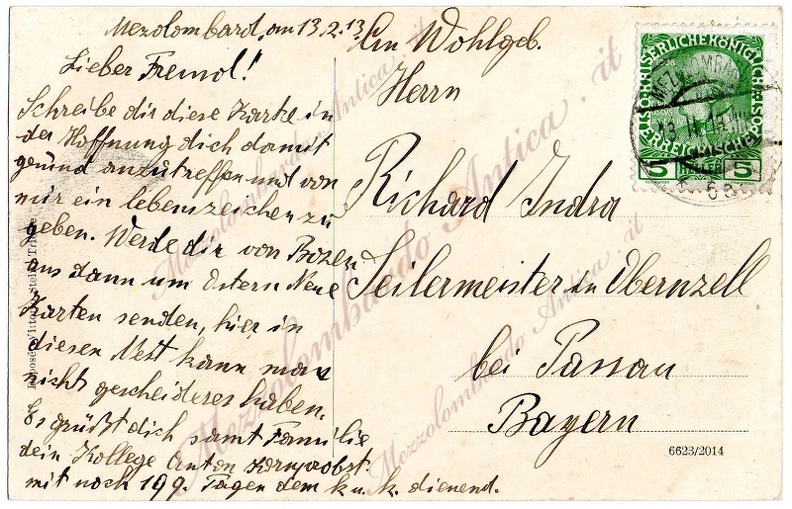 Mezolombard, am 13.2.13.
Lieber Freund!
Schreibe dir diese Karte in
der Hoffnung dich damit
gesund anzutreffen und von
mir ein lebenszeichen zu
geben. Werde dir von Bozen
aus dann um Ostern Neue
Karten senden, hier in
diesen Nest kann man
nichts gescheideres haben.
Es grüßt dich samt Familie
dein Kollege Anton
mit noch 199. Tagen dem k. u. k. dienend.
Wohlgeb.
Herrn
Richard Indra
Seilermeister in Obernzell
bei Passau
Bayern
6623/2014
5 HELLER 5
Mezzolombardo Antica . it
Mezzolombardo Antica . it
Mezzolombardo Antica . it